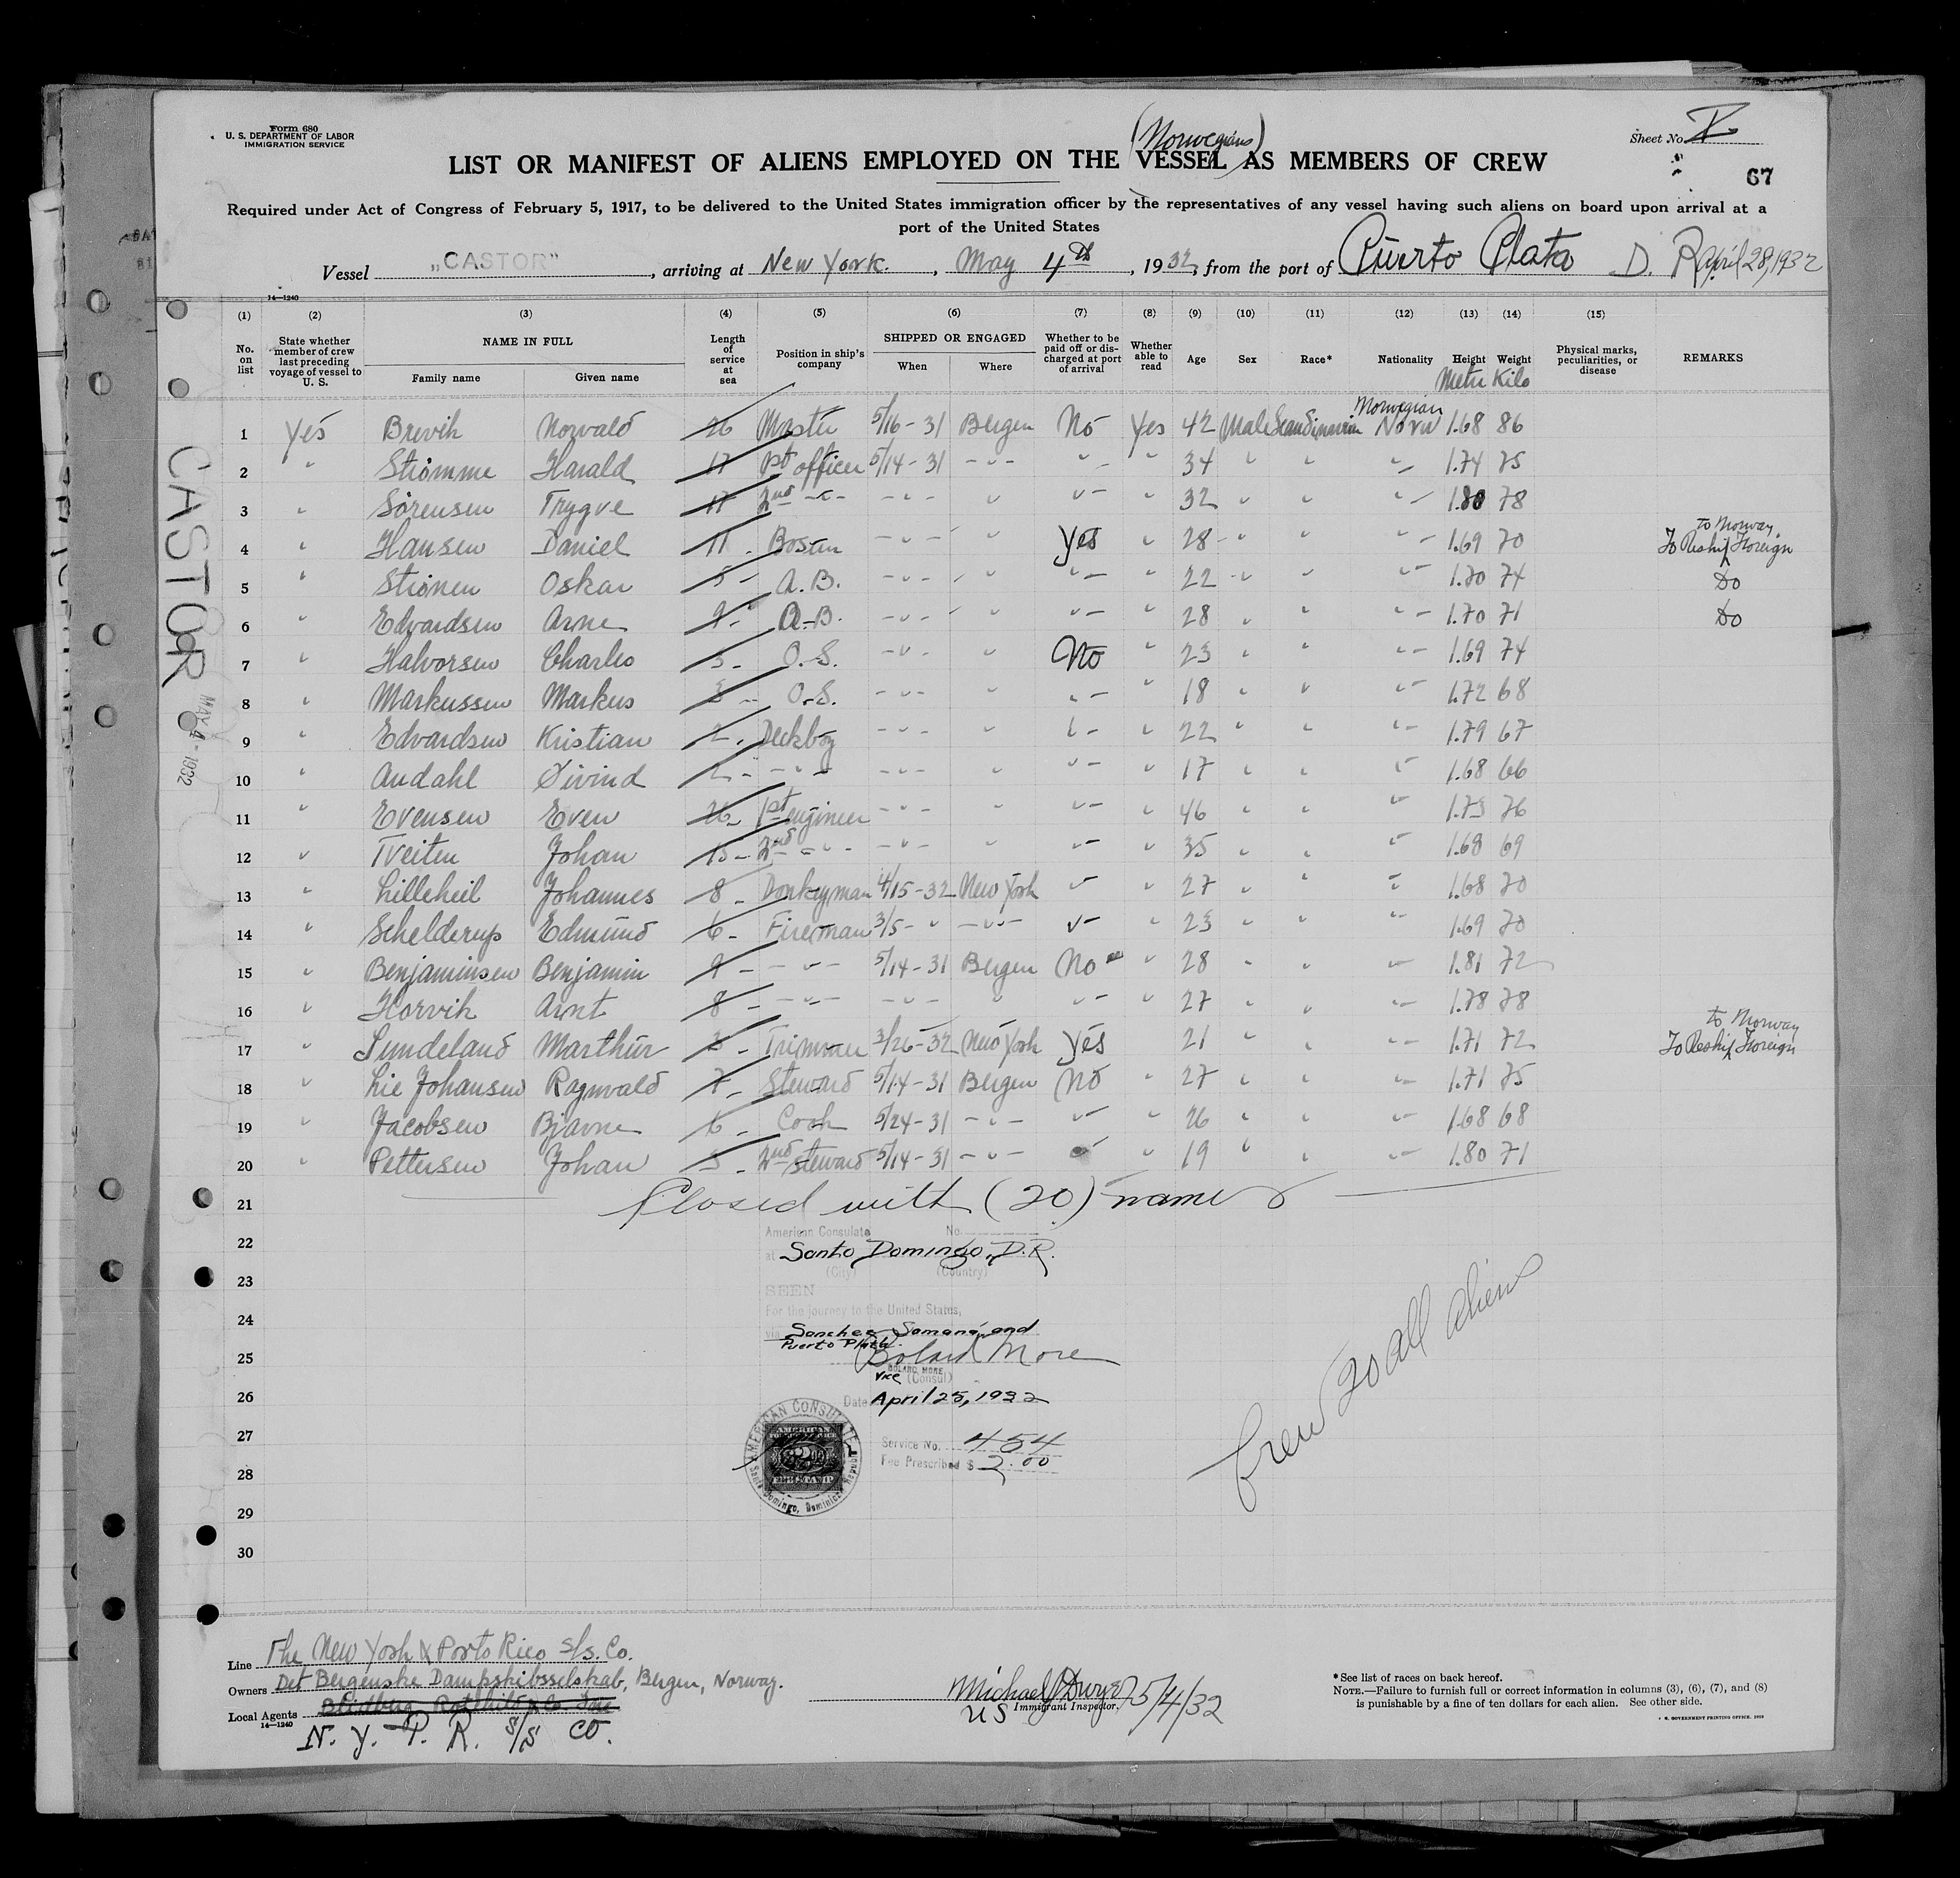 Form 680
U. S. DEPARTMENT OF LABOR
IMMIGRATION SERVICE
Sheet No.
67
(Norwegians)
LIST OR MANIFEST OF ALIENS EMPLOYED ON THE VESSEL AS MEMBERS OF CREW
Required under Act of Congress of February 5, 1917, to be delivered to the United States immigration officer by the representatives of any vessel having such aliens on board upon arrival at a
port of the United States
Vessel „CASTOR", arriving at New York., May 4th, 1932, from the port of Puerto Plata D. R April 28, 1932
14—1240
(1) (2) (3) (4) (5) (6) (7) (8) (9) (10) (11) (12) (13) (14) (15)
No. on list State whether member of crew last preceding voyage of vessel to U. S. NAME IN FULL Family name Given name Length of service at sea Position in ship's company SHIPPED OR ENGAGED When Where Whether to be paid off or discharged at port of arrival Whether able to read Age Sex Race* Nationality Height Metre Weight Kilo Physical marks, peculiarities, or disease REMARKS
1 Yes Brevik Norvald 26 Master 5/16-31 Bergen No Yes 42 Male Scandinavian Norwegian 1.68 86
2 " Strömme Harald 17 1st officer 5/14-31 -"- "- " 34 " " "- 1.74 75
3 " Sörensen Trygve 17 2nd -"- -"- " "- " 32 " " "- 1.80 78
4 " Hansen Daniel 11 - Bosun -"- " Yes " 28 " " "- 1.69 70 To Reship Foreign to Norway
5 " Strönen Oskar 5 - A.B. -"- " "- " 22 " " "- 1.70 74 Do
6 " Edvardsen Arne 9 - A.B. -"- " "- " 28 " " "- 1.70 71 Do
7 " Halvorsen Charles 3 - O.S. -"- " No " 23 " " "- 1.69 74
8 " Markussen Markus - O.S. -"- " "- " 18 " " "- 1.72 68
9 " Edvardsen Kristian 2 - Deckboy -"- " "- " 22 " " "- 1.79 67
10 " Andahl Öivind 2 - -"- -"- " "- " 17 " " "- 1.68 66
11 " Evensen Even 26 - 1st engineer -"- " "- " 46 " " "- 1.73 76
12 " Tveiten Johan 15 - 2nd -"- -"- " "- " 35 " " "- 1.68 69
13 " Lilleheil Johannes 8 - Donkeyman 4/15-32 New York "- " 27 " " " 1.68 70
14 " Schelderup Edmund 6 - Fireman 3/5-" -"- "- " 23 " " "- 1.69 70
15 " Benjaminsen Benjamin 9 - -"- 5/14-31 Bergen No " 28 " " "- 1.81 72
16 " Horvik Arnt 8 - -"- -"- " "- " 27 " " "- 1.78 78
17 " Sundeland Marthur 3 - Trimmer 3/26-32 New York Yes " 21 " " "- 1.71 72 To Reship Foreign to Norway
18 " Lie Johansen Ragnvald 7 - Steward 5/14-31 Bergen No " 27 " " "- 1.71 75
19 " Jacobsen Bjarne 6 - Cook 5/24-31 -"- "- " 26 " " "- 1.68 68
20 " Pettersen Johan 3 - 2nd steward 5/14-31 -"- " " 19 " " "- 1.80 71
21 Closed with (20) names
22
23
24
25
26
27
28
29
30
American Consulate No.
at Santo Domingo, D.R.
(City) (Country)
SEEN
For the journey to the United States,
via Sanchez Samaná and
Puerto Plata
Boland More
BOLARD MORE
Vice (Consul)
Date April 25, 1932
Service No. 454
Fee Prescribed $ 2.00
AMERICAN CONSULATE
Santo Domingo, Dominican
AMERICAN
FOREIGN SERVICE
$2.00
FEE STAMP
Crew 20 all aliens
CASTOR
MAY 4 - 1932
Line The New York & Porto Rico S/S. Co.
Owners Det Bergenske Dampskibsselskab, Bergen, Norway.
Local Agents
14—1240
N. Y. P. R. S/S CO.
Michael J Dwyer 5/4/32
US Immigrant Inspector.
*See list of races on back hereof.
NOTE.—Failure to furnish full or correct information in columns (3), (6), (7), and (8)
is punishable by a fine of ten dollars for each alien. See other side.
GOVERNMENT PRINTING OFFICE